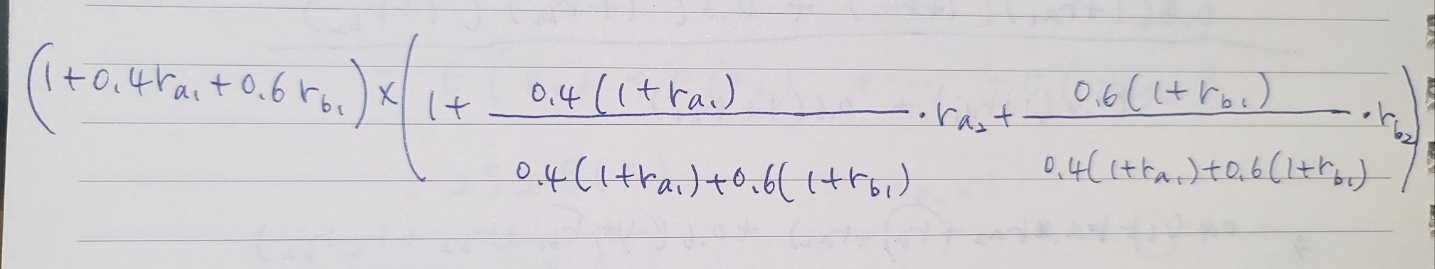 (1+0.4r_{a_1}+0.6r_{b_1})×(1+\frac{0.4(1+r_{a_1})}{0.4(1+r_{a_1})+0.6(1+r_{b_1})}·r_{a_2}+\frac{0.6(1+r_{b_1})}{0.4(1+r_{a_1})+0.6(1+r_{b_1})}·r_{b_2})